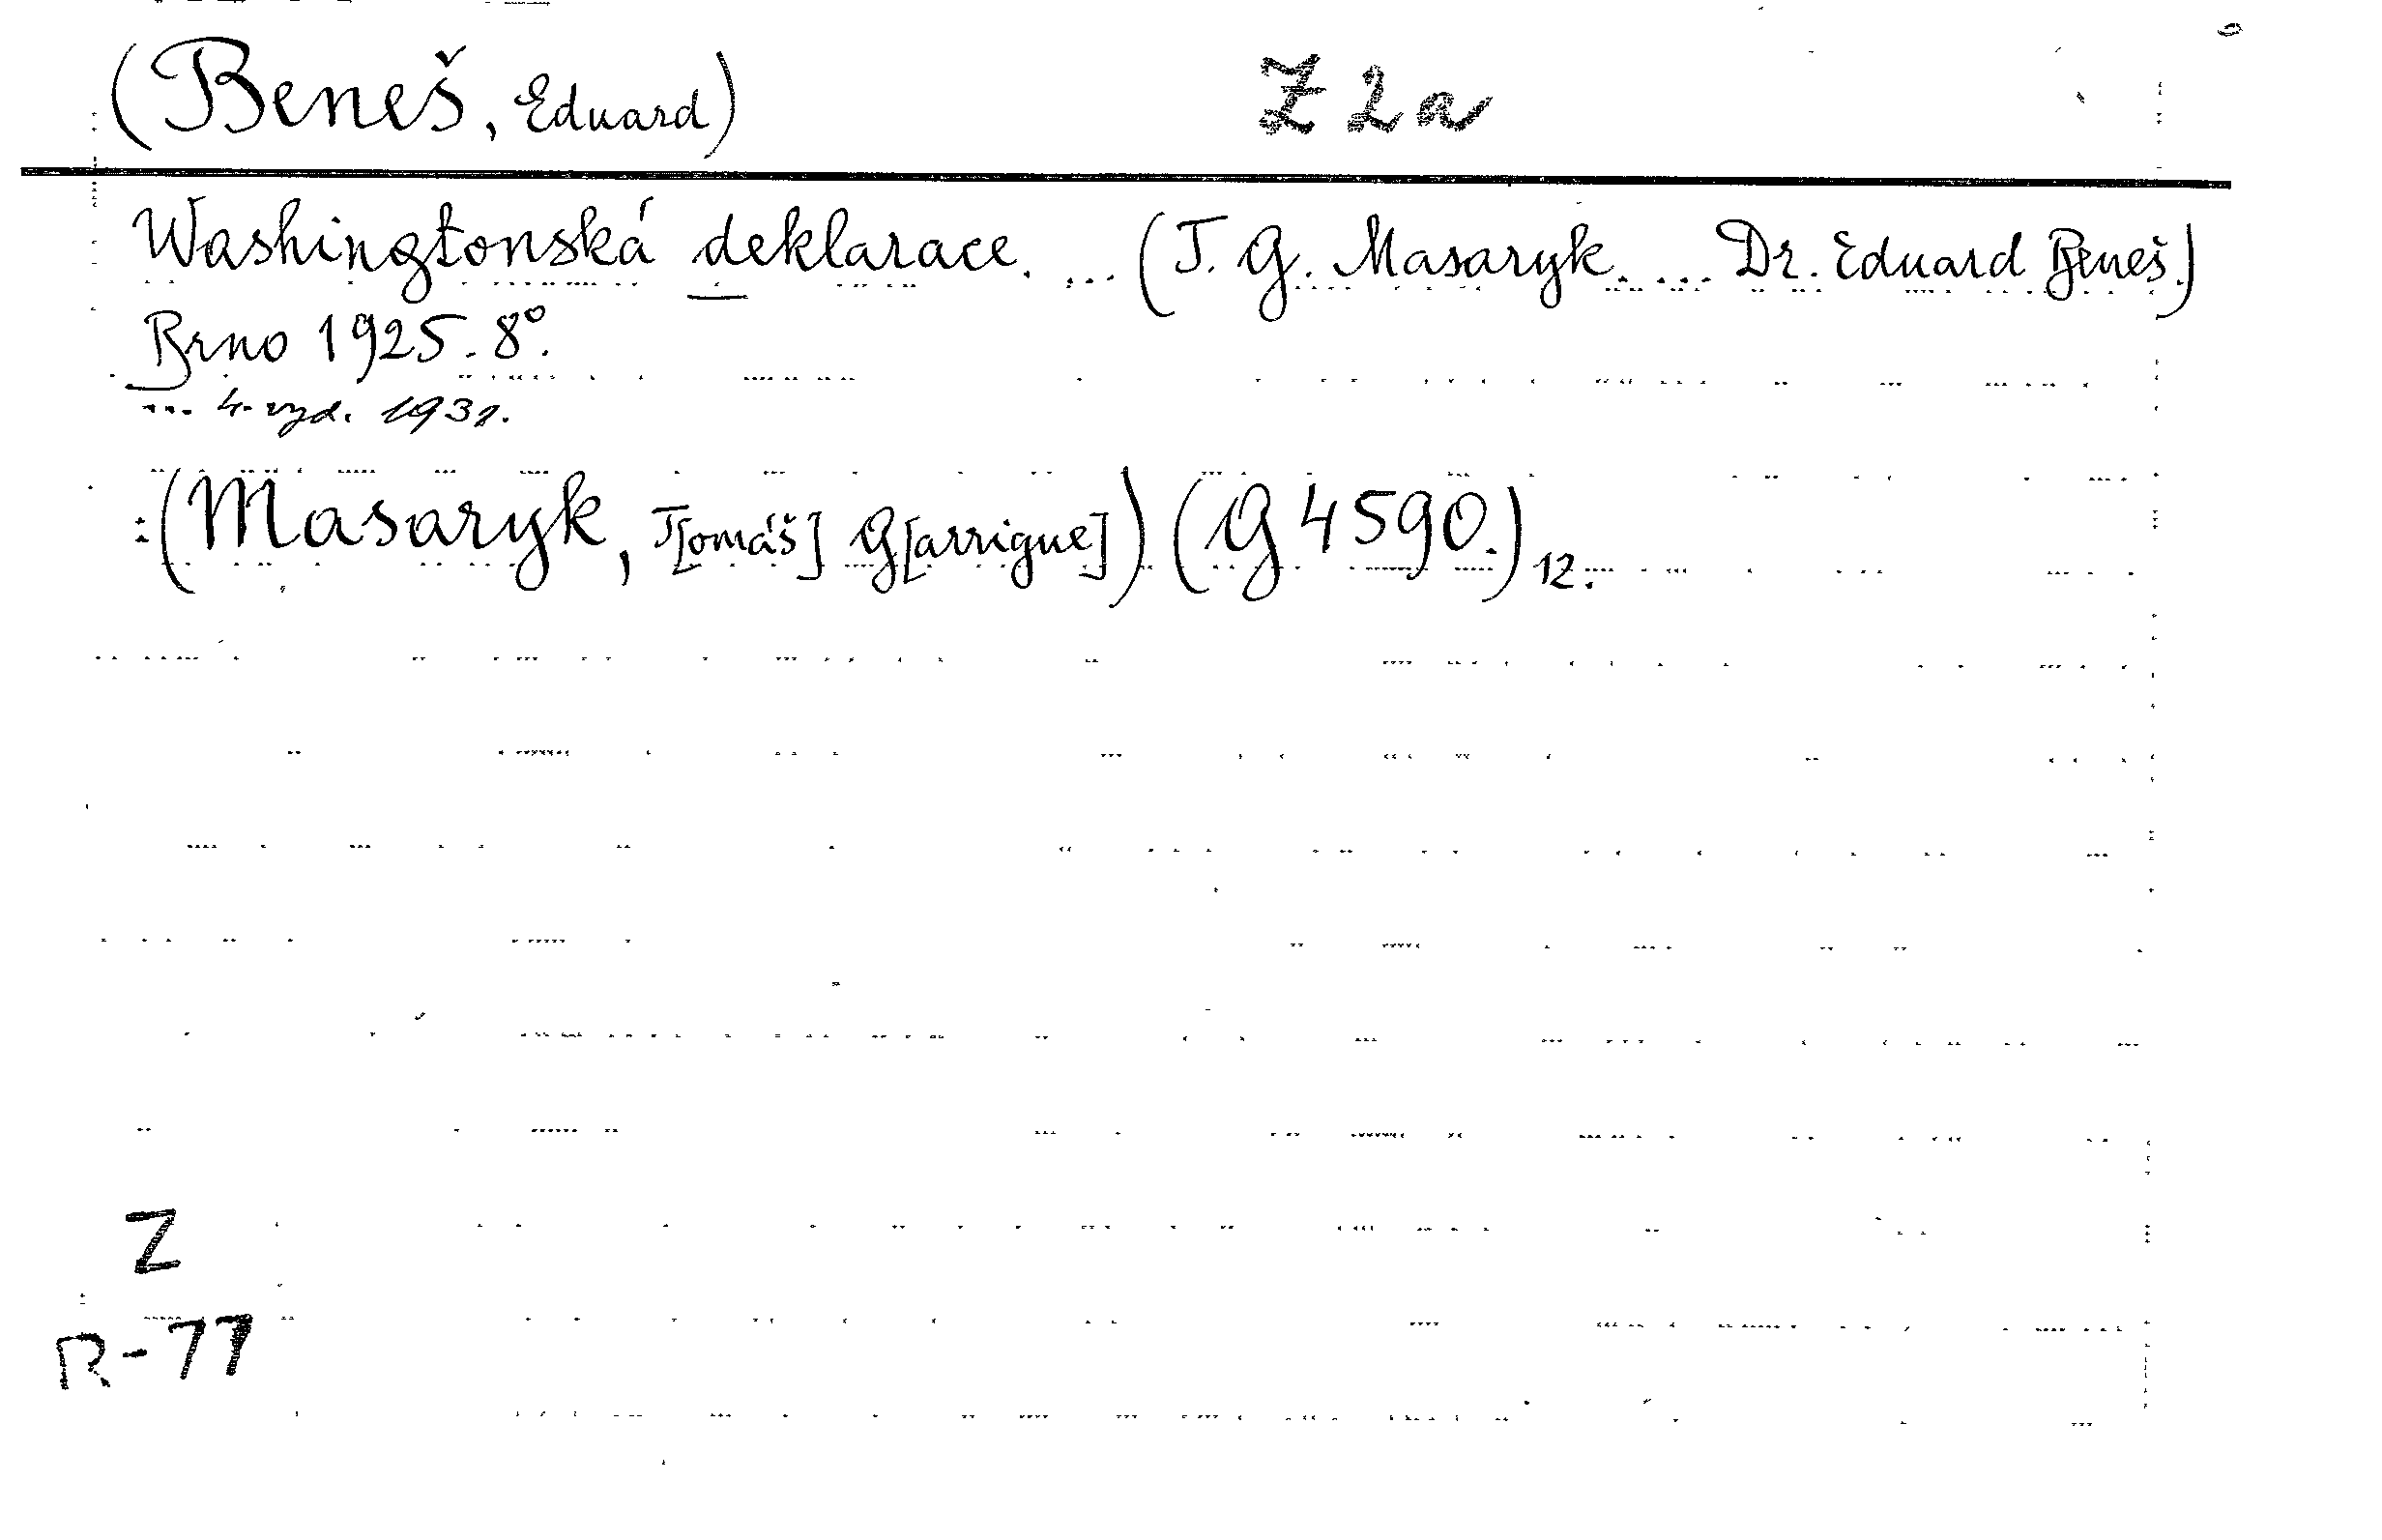 (Beneš, Eduard) Z 2a
Washingtonská deklarace. ... (T. G. Masaryk. ... Dr. Eduard Beneš.)
Brno 1925. 8°.
... 4. vyd. 1931.
:(Masaryk, T[omáš] G[arrigue]) (G 4590.) 12.
Z
R-77